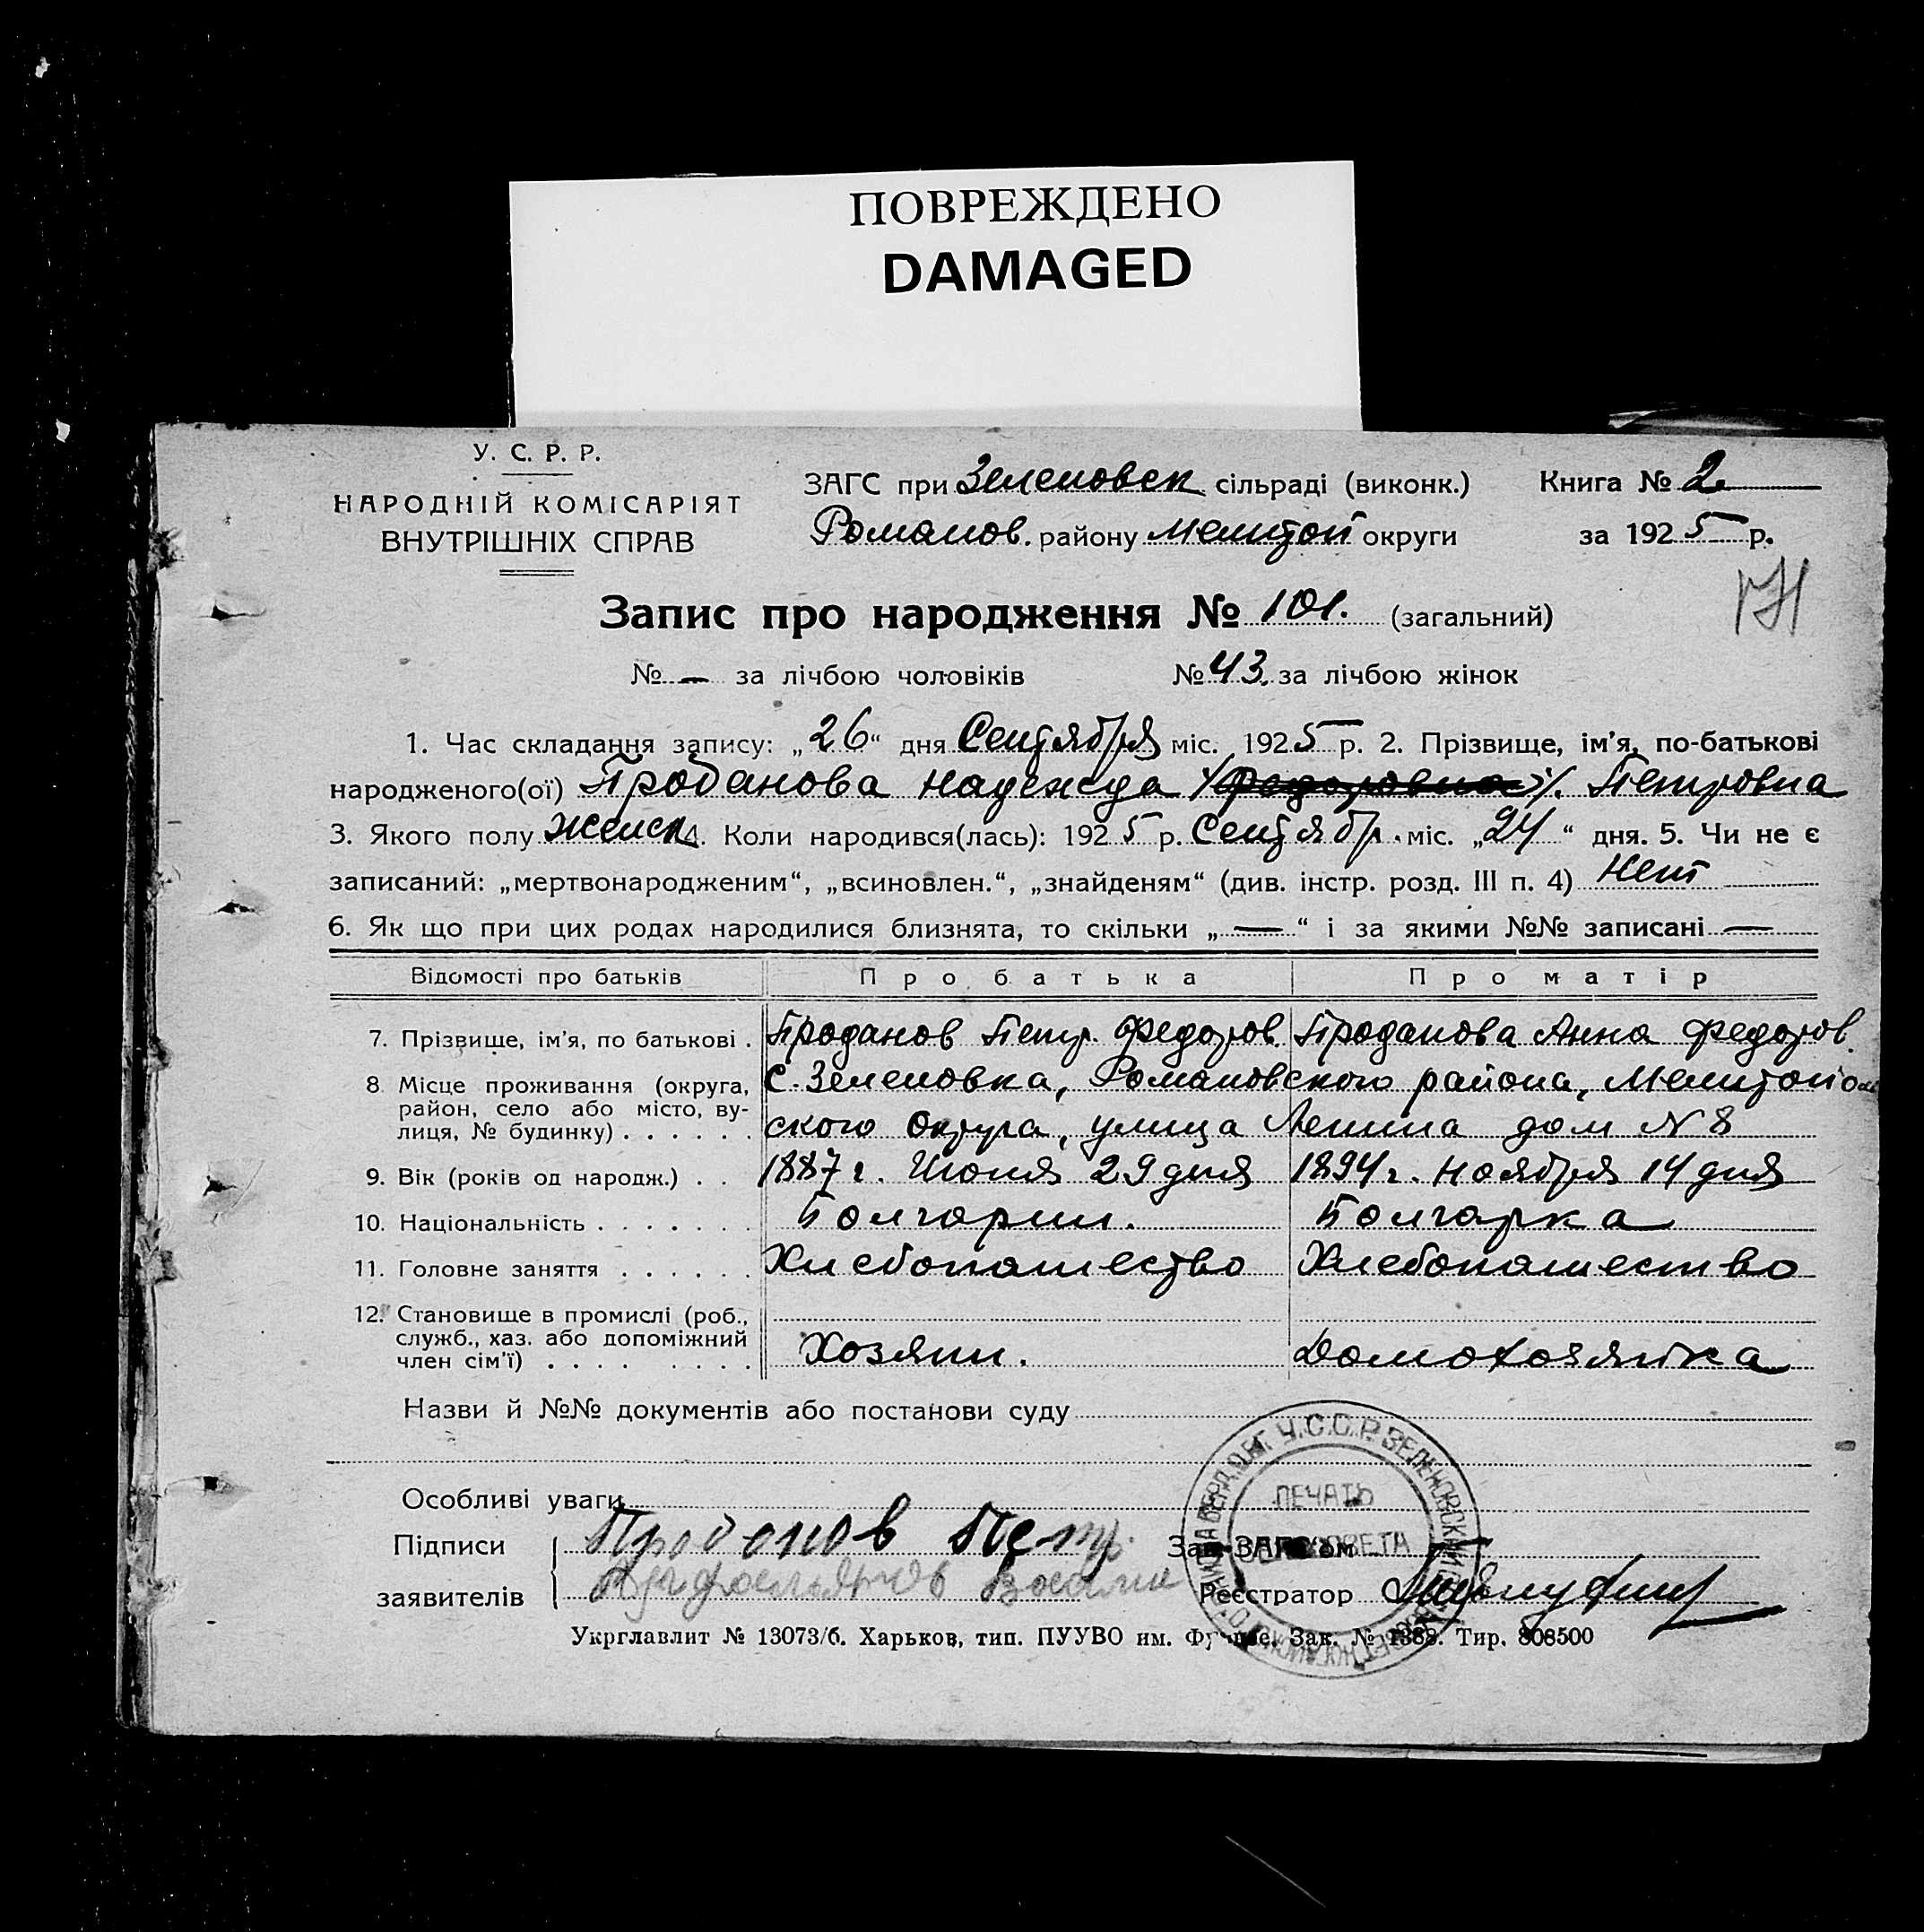 ПОВРЕЖДЕНО
DAMAGED
У. С. Р. Р.
НАРОДНІЙ КОМІСАРІЯТ
ВНУТРІШНІХ СПРАВ
ЗАГС при Зеленовск сільраді (виконк.) Книга № 2
Романов. району Мелитоп округи за 1925 р.
Запис про народження № 101. (загальний)
№ — за лічбою чоловіків № 43. за лічбою жінок
1. Час складання запису: „26“ дня Сентября міс. 1925 р. 2. Прізвище, ім'я, по-батькові
народженого(ої) Проданова Надежда Петровна
3. Якого полу Женск 4. Коли народився(лась): 1925 р. Сентябр. міс. „24“ дня. 5. Чи не є
записаний: „мертвонародженим“, „всиновлен.“, „знайденям“ (див. інстр. розд. III п. 4) Нет
6. Як що при цих родах народилися близнята, то скільки „—“ і за якими №№ записані —
Відомості про батьків Про батька Про матір
7. Прізвище, ім'я, по батькові . Проданов Петр. Федоров. Проданова Анна Федоров.
8 Місце проживання (округа, район, село або місто, ву-
лиця, № будинку) . . . . . . С. Зеленовка, Романовского района, Мелитополь
ского округа, улица Ленина дом № 8
9. Вік (років од народж.) . . 1887 г. Июня 29 дня 1894 г. Ноября 14 дня
10. Національність . . . . . . . Болгарин. Болгарка
11. Головне заняття . . . . . . Хлебопашество Хлебопашество
12. Становище в промислі (роб.,
служб., хаз. або допоміжний
член сім'ї) . . . . . . . . Хозяин. Домохозяйка
Назви й №№ документів або постанови суду
Особливі уваги
Підписи Проданов Петр. Зав. ЗАГС'ом
заявителів Реєстратор
У.С.С.Р. ЗЕЛЕНОВСКИЙ
ПЕЧАТЬ
СЕЛЬСОВЕТА
Укрглавлит № 13073/б. Харьков, тип. ПУУВО им. Фрунзе. Зак. № 1388. Тир. 808500